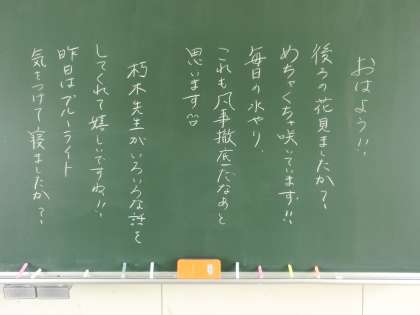 おはよう!!
後ろの花見ましたか?
めちゃくちゃ咲いています!!
毎日の水やり、
これも凡事徹底だなあと
思います
朽木先生がいろいろな話を
してくれて嬉しいですね!!
昨日はブルーライト
気をつけて寝ましたか?